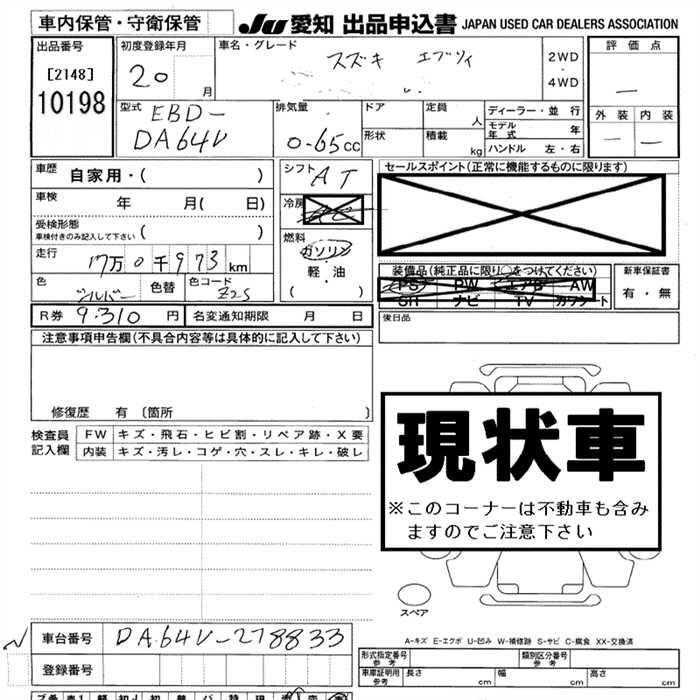 車内保管・守衛保管 JU 愛知 出品申込書 JAPAN USED CAR DEALERS ASSOCIATION
出品番号 初度登録年月 車名・グレード 評価点
[2148] 20 月 スズキ エブリィ 2WD ・ 4WD —
10198
型式 EBD-DA64V 排気量 0.65cc ドア 定員 人 ディーラー・並行 外装 内装
形状 積載 kg モデル年式 年 — —
ハンドル 左・右
車歴 自家用・( ) シフト AT セールスポイント(正常に機能するものに限ります)
車検 年 月( 日) 冷房
受検形態 車検付きのみ記入して下さい ( ) 燃料 ガソリン
走行 17万0千973km 軽・油 装備品(純正品に限り○をつけてください) 新車保証書
色 シルバー 色替 色コード Z2S ( ) PS PW エアB AW 有・無
SR ナビ TV カワシート
R券 9.310円 名変通知期限 月 日 後日品
注意事項申告欄(不具合内容等は具体的に記入して下さい)
修復歴 有 〔箇所 〕
現状車
※このコーナーは不動車も含みますのでご注意下さい
検査員記入欄 FW キズ・飛石・ヒビ割・リペア跡・X要
内装 キズ・汚レ・コゲ・穴・スレ・キレ・破レ
スペア
車台番号 DA64V-278833
A-キズ E-エクボ U-凹み W-補修跡 S-サビ C-腐食 XX-交換済
登録番号 形式指定番号 参考 類別区分番号 参考
車庫証明用 参考 長さ cm 幅 cm 高さ cm